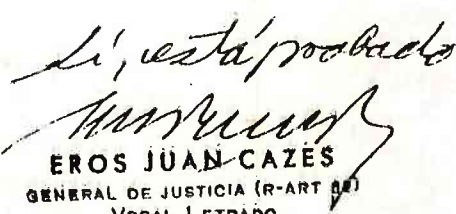 Sí, está probado
EROS JUAN CAZES
GENERAL DE JUSTICIA (R-ART
VOCAL LETRADO